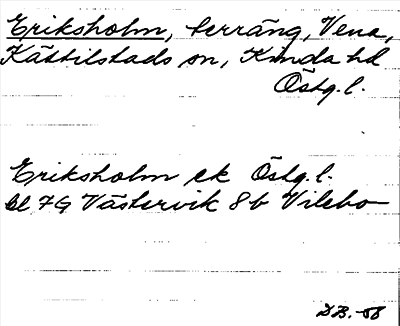 Eriksholm, terräng, Vena,
Kättilstads sn, Kinda hd
Östg.l.
Eriksholm ek Östg.l.
bl 7G Västervik 8b Vilebo
DB.-68